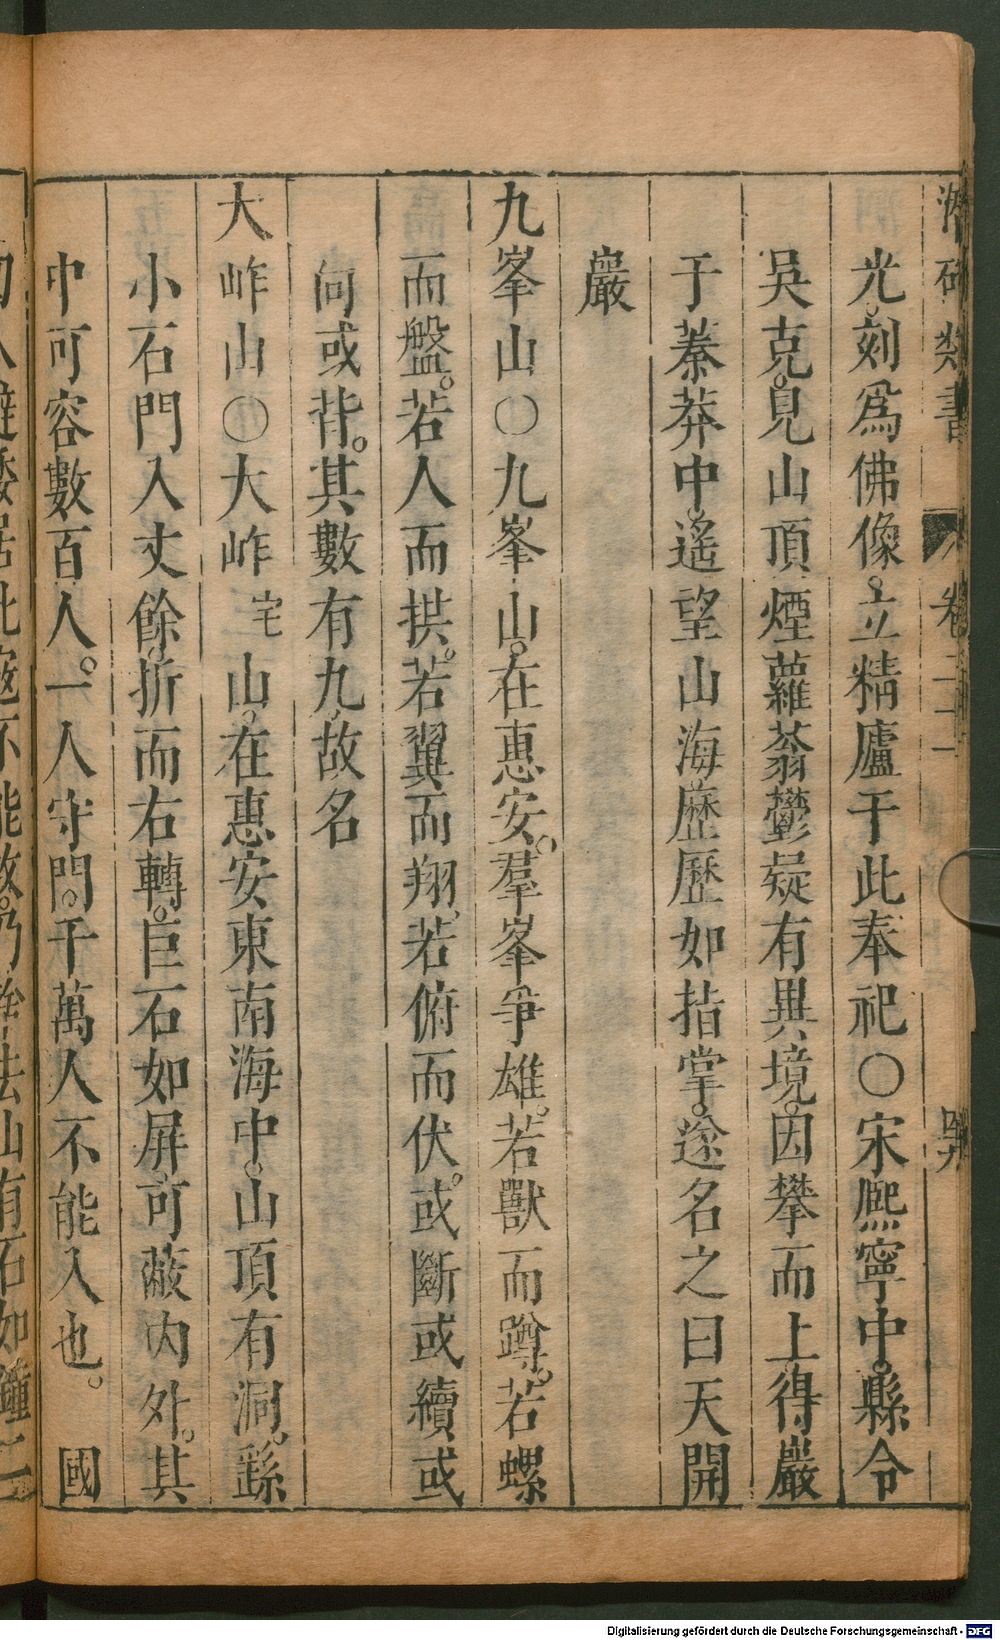 類書 卷二
光。刻爲佛像。立精廬于此奉祀〇宋熈寧中。縣令
吳克。見山頂煙蘿蓊鬱。疑有異境。因攀而上得巖
于蓁莽中。遙望山海歷歷如指掌。遂名之曰天開
巖
九峯山〇九峯山。在惠安。羣峯爭雄。若獸而蹲。若螺
而盤。若人而拱。若翼而翔。若俯而伏。或斷或續或
向或背。其數有九。故名
大岞山〇大岞 宅 山。在惠安東南海中。山頂有洞。繇
小石門入丈餘。折而右轉。巨石如屏。可蔽內外。其
中可容數百人。一人守門。千萬人不能入也。 國
山有石如鐘二
Digitalisierung gefördert durch die Deutsche Forschungsgemeinschaft - DFG